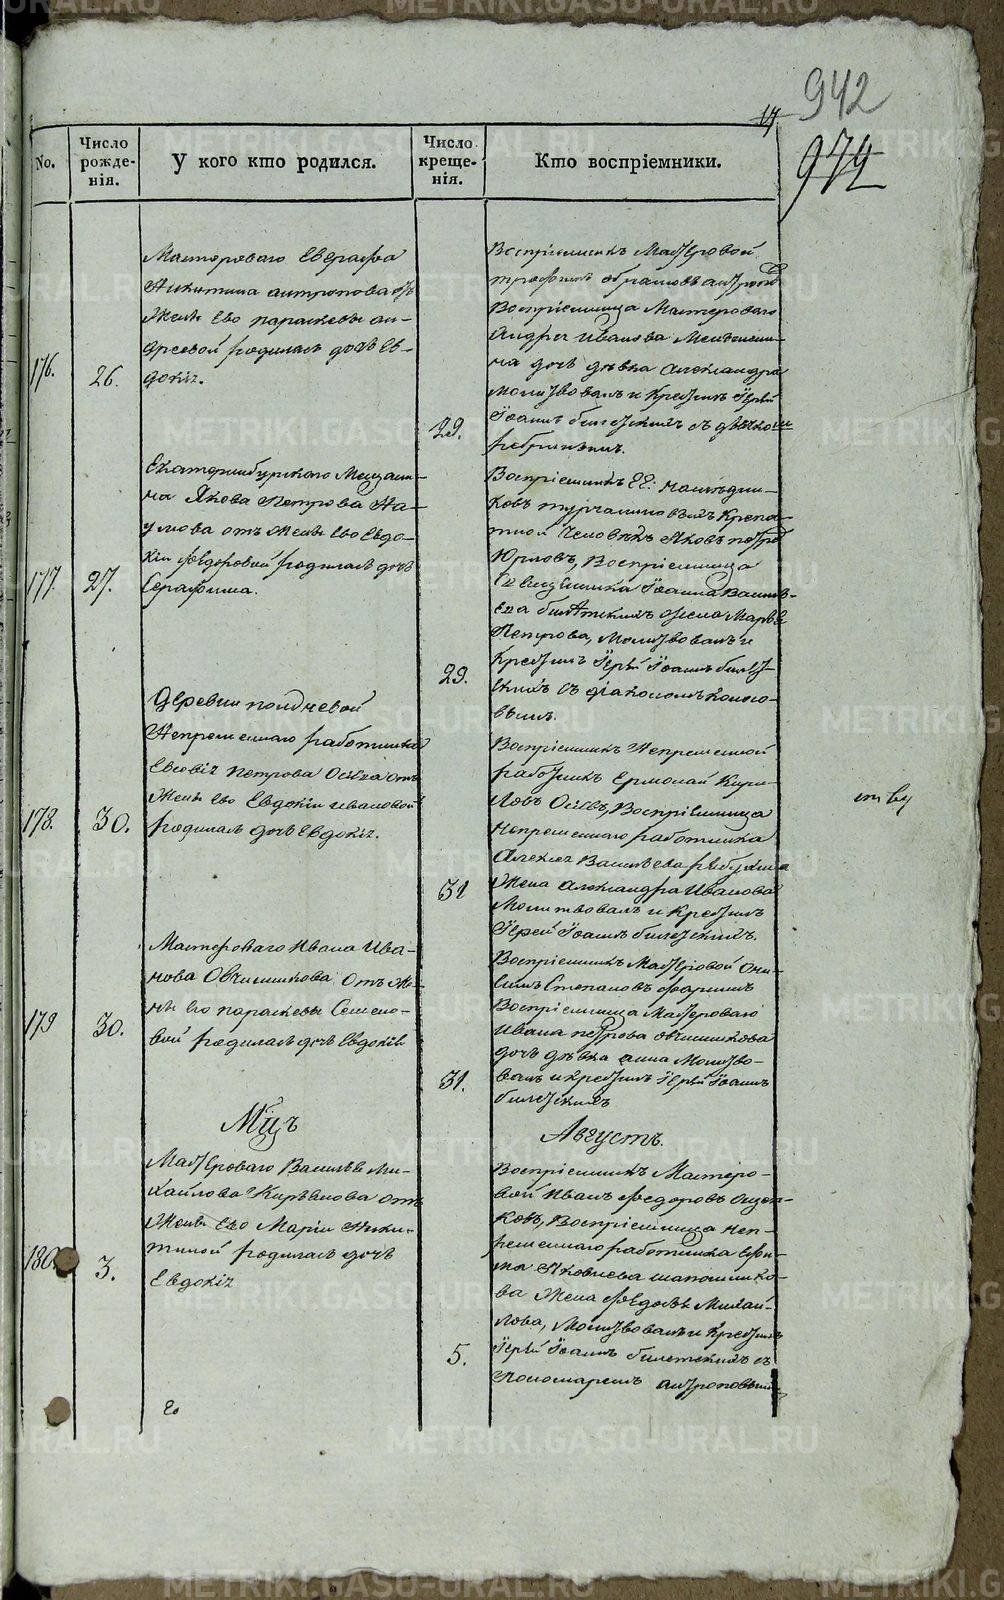 942
17
979
No.
Число рожде-нія.
У кого кто родился.
Число креще-нія.
Кто воспріемники.
176.
26.
Мастероваго Евграфа
Никитина антропова отъ
Жены Ево параскевы ан-
дреевой родилась дочь Ев-
докія.
29.
Воспріемникъ Мастеровой
Воспріемница Мастероваго
Андрея Иванова
на дочь девка Александра
Молитвовалъ и Крестилъ Іерей
Іоаннъ
177.
27.
Екатеринбургскаго Мещани-
на Якова Петрова На-
умова отъ Жены Ево Евдо-
кіи федоровой родилась дочь
Серафима.
29.
Воспріемникъ
ковъ турчаниновыхъ Крепо-
стной Человекъ Яковъ петровъ
Юрловъ, Воспріемница
Священника Іоанна Василь-
ева жена Марья
Петрова, Молитвовалъ и
Крестилъ Іерей Іоаннъ
съ діакономъ
вымъ.
178.
30.
Деревни полдневой
Непременнаго работника
Евсевія Петрова Осиева отъ
Жены Ево Евдокіи ивановой
родилась дочь Евдокія.
31
Воспріемникъ Непременной
работникъ Ермолай Кири-
ловъ Воспріемница
Непременнаго работника
Алексея Васильева
Жена Александра Иванова
Молитвовалъ и Крестилъ
Іерей Іоаннъ
179
30.
Мастероваго Ивана Ива-
нова Овчинникова Отъ Же-
ны Ево параскевы Семено-
вой родилась дочь Евдокія
31.
Воспріемникъ Мастеровой Они-
симъ Степановъ
Воспріемница Мастероваго
Ивана петрова овчинникова
дочь девка анна Молитво-
валъ и крестилъ Іерей Іоаннъ
Мцъ
Августъ.
180
3.
Мастероваго Василья Ми-
хайлова отъ
Жены Ево Маріи Ники-
тиной родилась дочь
Евдокія
5.
Воспріемникъ Мастеро-
вой Иванъ федоровъ
ковъ, Воспріемница Неп-
ременнаго работника Ефи-
ма Яковлева шапошнико-
ва Жена федосья Михай-
лова, Молитвовалъ и Крестилъ
Іерей Іоаннъ съ
Пономаремъ антроповымъ